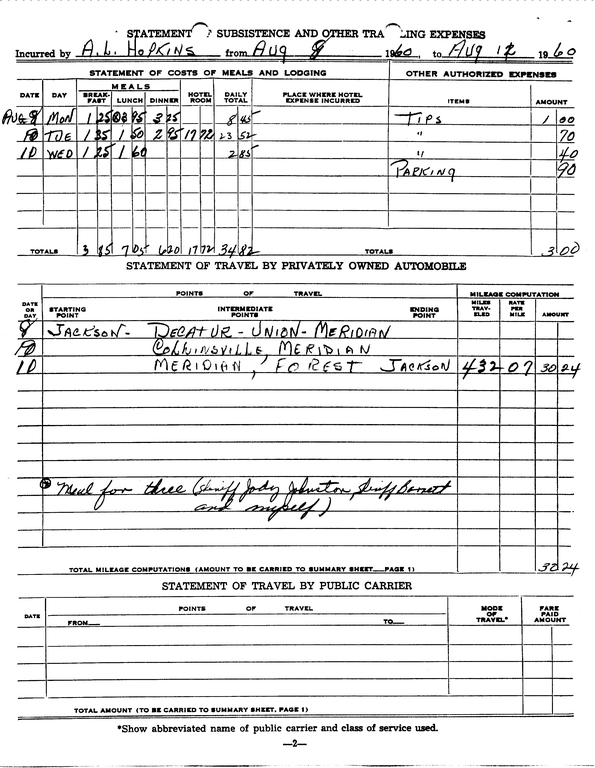 STATEMENT SUBSISTENCE AND OTHER LING EXPENSES
Incurred by A.L. HOPKINS from AUG 8 1960, to AUG 12 1960
STATEMENT OF COSTS OF MEALS AND LODGING OTHER AUTHORIZED EXPENSES
DATE DAY MEALS BREAK-FAST LUNCH DINNER HOTEL ROOM DAILY TOTAL PLACE WHERE HOTEL EXPENSE INCURRED ITEMS AMOUNT
AUG 8 MON 1 25 3 95 3 25 8 45 TIPS 1 00
TUE 1 35 1 50 2 95 17 72 23 52 " 70
10 WED 1 25 1 60 2 85 " 40
PARKING 90
TOTALS 3 85 7 05 6 20 17 72 34 82 TOTALS 3.00
STATEMENT OF TRAVEL BY PRIVATELY OWNED AUTOMOBILE
DATE OR DAY POINTS OF TRAVEL MILEAGE COMPUTATION
STARTING POINT INTERMEDIATE POINTS ENDING POINT MILES TRAV-ELED RATE PER MILE AMOUNT
8 JACKSON- DECATUR - UNION - MERIDIAN
COLLINSVILLE, MERIDIAN
10 MERIDIAN, FOREST JACKSON 432 07 30 24
Meal for three (Sheriff Jody Johnston, Sheriff Barnett
and myself)
TOTAL MILEAGE COMPUTATIONS (AMOUNT TO BE CARRIED TO SUMMARY SHEET—PAGE 1) 30 24
STATEMENT OF TRAVEL BY PUBLIC CARRIER
DATE POINTS OF TRAVEL MODE OF TRAVEL* FARE PAID AMOUNT
FROM— TO—
TOTAL AMOUNT (TO BE CARRIED TO SUMMARY SHEET, PAGE 1)
*Show abbreviated name of public carrier and class of service used.
—2—